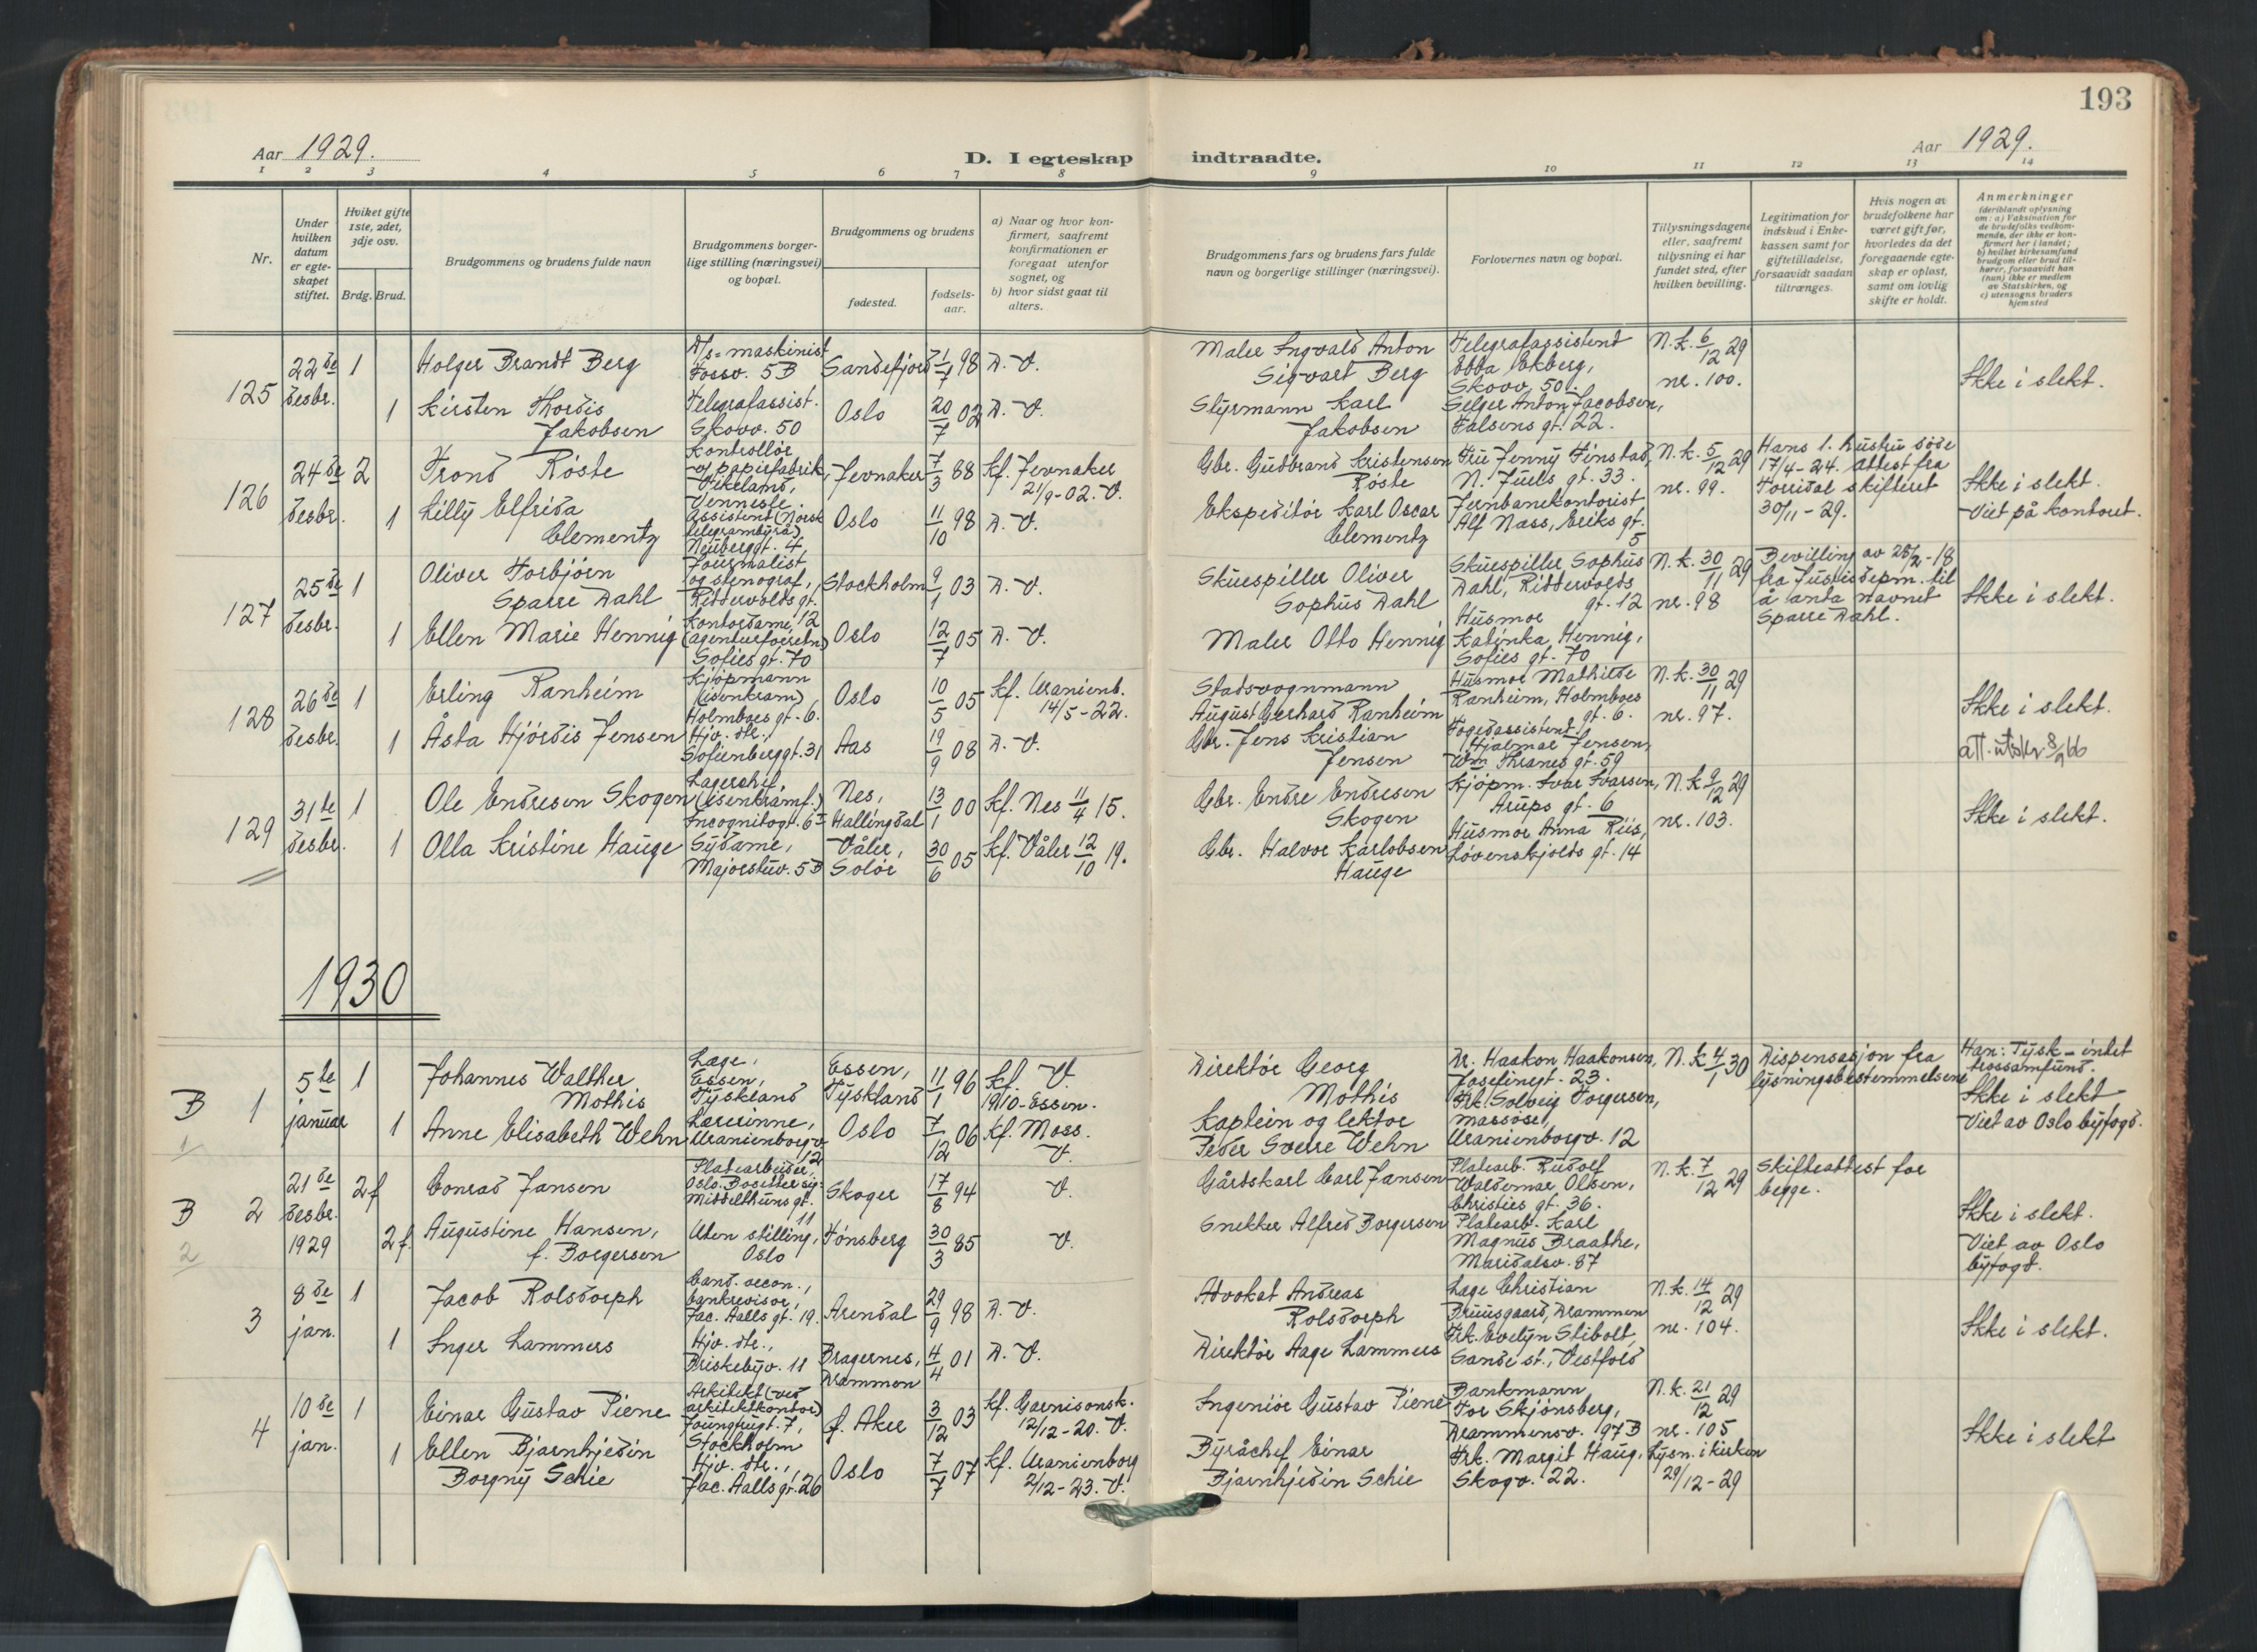 193
Aar 1929.
D. I egteskap indtraadte.
Aar 1929.
1 2 3 4 5 6 7 8 9 10 11 12 13 14
Nr.
Under
hvilken
datum
er egte-
skapet
stiftet.
Hviket gifte
1ste, 2det,
3dje osv.
Brdg. Brud.
Brudgommens og brudens fulde navn
Brudgommens borger-
lige stilling (næringsvei)
og bopæl.
Brudgommens og brudens
fødested.
fødsels-
aar.
a) Naar og hvor kon-
firmert, saafremt
konfirmationen er
foregaat utenfor
sognet, og
b) hvor sidst gaat til
alters.
Brudgommens fars og brudens fars fulde
navn og borgerlige stillinger (næringsvei).
Forlovernes navn og bopæl.
Tillysningsdagene
eller, saafremt
tillysning ei har
fundet sted, efter
hvilken bevilling.
Legitimation for
indskud i Enke-
kassen samt for
giftetilladelse,
forsaavidt saadan
tiltrænges.
Hvis nogen av
brudefolkene har
været gift før,
hvorledes da det
foregaaende egte-
skap er opløst,
samt om lovlig
skifte er holdt.
Anmerkninger
(deriblandt oplysning
om: a) Vaksination for
de brudefolks vedkom-
mende, der ikke er kon-
firmert her i landet;
b) hvilket kirkesamfund
brudgom eller brud til-
hører, forsaavidt han
(hun) ikke er medlem
av Statskirken, og
c) utensogns bruders
hjemsted
125
22de
desbr.
1
Holger Brandt Berg
D/s-maskinist
Fossv. 5B
Sandefjord
98
D. V.
Maler Ingvald Anton
Sigvart Berg
Telegrafassistent
Ebba Ekberg,
Skovv. 50.
N.k. 6/12 29
nr. 100.
Ikke i slekt.
1
Kirsten Thordis
Jakobsen
Telegrafassist.
Skovv. 50
Oslo
20/7 02
D. V.
Styrmann Karl
Jakobsen
Selger Anton Jacobsen,
Falsens gt. 22.
126
24de
desbr.
2
Trond Røste
Kontrollør
v/ papirfabrik,
Vikeland,
Vennesla.
Jevnaker
7/3 88
Kf. Jevnaker
21/9-02. V.
Gbr. Gudbrand Kristensen
Røste
Fru Jenny Finstad,
N. Juels gt. 33.
N.k. 5/12 29
nr. 99.
Hans 1. hustru døde
17/4-24. Attest fra
Torridal skifteret
30/11-29.
Ikke i slekt.
Viet på kontoret.
1
Lilly Elfrida
Clementz
Assistent (Norsk
telegrambyrå)
Neuberggt. 4,
Oslo
11/10 98
D. V.
Ekspeditør Karl Oscar
Clementz
Jernbanekontorist
Alf Næss, Eriks gt.
5
127
25de
desbr.
1
Oliver Torbjørn
Sparre Dahl
Journalist
og stenograf,
Riddervolds gt.
12
Stockholm
9/1 03
D. V.
Skuespiller Oliver
Sophus Dahl
Skuespiller Sophus
Dahl, Riddervolds
gt. 12
N.k. 30/11 29
nr. 98
Bevilling av 28/2-18
fra Justisdepm. til
å anta navnet
Sparre Dahl.
Ikke i slekt.
1
Ellen Marie Hennig
Kontordame,
(agenturforretn.)
Sofies gt. 70
Oslo
12/7 05
D. V.
Maler Otto Hennig
Husmor
Katinka Hennig,
Sofies gt. 70
128
26de
desbr.
1
Erling Ranheim
Kjøpmann
(isenkram),
Holmboes gt. 6.
Oslo
10/5 05
Kf. Uranienb.
14/5-22.
Stadsvognmann
August Gerhard Ranheim
Husmor Mathilde
Ranheim, Holmboes
gt. 6.
N.k. 30/11 29
nr. 97.
Ikke i slekt.
1
Åsta Hjørdis Jensen
Hjv. dtr.,
Sofienberggt. 31
Aas
19/9 08
D. V.
Gbr. Jens Kristian
Jensen
Fogedassistent
Hjalmar Jensen,
Wm Thranes gt. 59
att. utskr. 8/2 66
129
31te
desbr.
1
Ole Endresen Skogen
Lagerchef,
(isenkramf.)
Incognitogt. 6
Nes,
Hallingdal
13/1 00
Kf. Nes 11/4 15.
Gbr. Endre Endresen
Skogen
Kjøpm. Ivar Ivarsen,
Arups gt. 6
N.k. 9/12 29
nr. 103.
Ikke i slekt.
1
Olla Kristine Hauge
Sydame,
Majorstuv. 5B
Våler,
Solør
30/6 05
Kf. Våler 12/10 19.
Gbr. Halvor Karlobsen
Hauge
Husmor Anna Riis,
Løvenskjolds gt. 14
1930
B 1
1
5te
januar
1
Johannes Walther
Mothis
Læge,
Essen,
Tyskland
Essen,
Tyskland
11/1 96
Kf. V.
1910-Essen.
Direktør Georg
Mothis
Dr. Haakon Haakonsen,
Josefinegt. 23.
N.k. 4/1 30
Dispensasjon fra
lysningsbestemmelsene
Han: Tysk - intet
trossamfund.
Ikke i slekt
Viet av Oslo byfogd.
1
Anne Elisabeth Wehn
Lærerinne,
Uranienborgv.
12
Oslo
7/12 06
Kf. Moss.
V.
Kaptein og lektor
Peder Sverre Wehn
Frk. Solveig Torgersen,
massøse,
Uranienborgv. 12
B 2
2
21de
desbr.
1929
2f
Conrad Jansen
Platearbeider,
Oslo.
Middelthuns gt.
11
Skoger
17/8 94
V.
Gårdskarl Carl Jansen
Platearb. Rudolf
Waldemar Olsen,
Christies gt. 36.
N.k. 7/12 29
Skifteattest for
begge.
Ikke i slekt.
Viet av Oslo
byfogd.
2f.
Augustine Hansen,
f. Borgersen
Uten stilling,
Oslo
Tønsberg
30/3 85
V.
Snekker Alfred Borgersen
Platearb. Karl
Magnus Braathe,
Maridalsv. 87
3
8de
jan.
1
Jacob Rolsdorph
Cand. oecon.,
bankrevisor,
Jac. Aalls gt. 19.
Arendal
29/9 98
D. V.
Advokat Andreas
Rolsdorph
Læge Christian
Bruusgaard, Drammen
N.k. 14/12 29
nr. 104.
Ikke i slekt.
1
Inger Lammers
Hjv. dtr.,
Briskebyv. 11
Bragernes,
Drammen
4/4 01
D. V.
Direktør Aage Lammers
Frk. Evelyn Stibolt,
Sande st., Vestfold
4
10de
jan.
1
Einar Gustav Piene
Arkitekt (ved
arkitektkontor)
Stockholm
f. Aker
3/12 03
Kf. Garnisonsk.
12/12-20. V.
Ingeniør Gustav Piene
Bankmann
Tor Skjønsberg,
Drammensv. 97B
N.k. 21/12 29
nr. 105
Ikke i slekt
1
Ellen Bjarnhjedin
Borgny Schie
Hjv. dtr.,
Jac. Aalls gt. 26
Oslo
7/7 07
Kf. Uranienborg
2/12-23. V.
Byråchef Einar
Bjarnhjedin Schie
Frk. Margit Haug,
Skogv. 22.
Lysn. i kirken
29/12-29